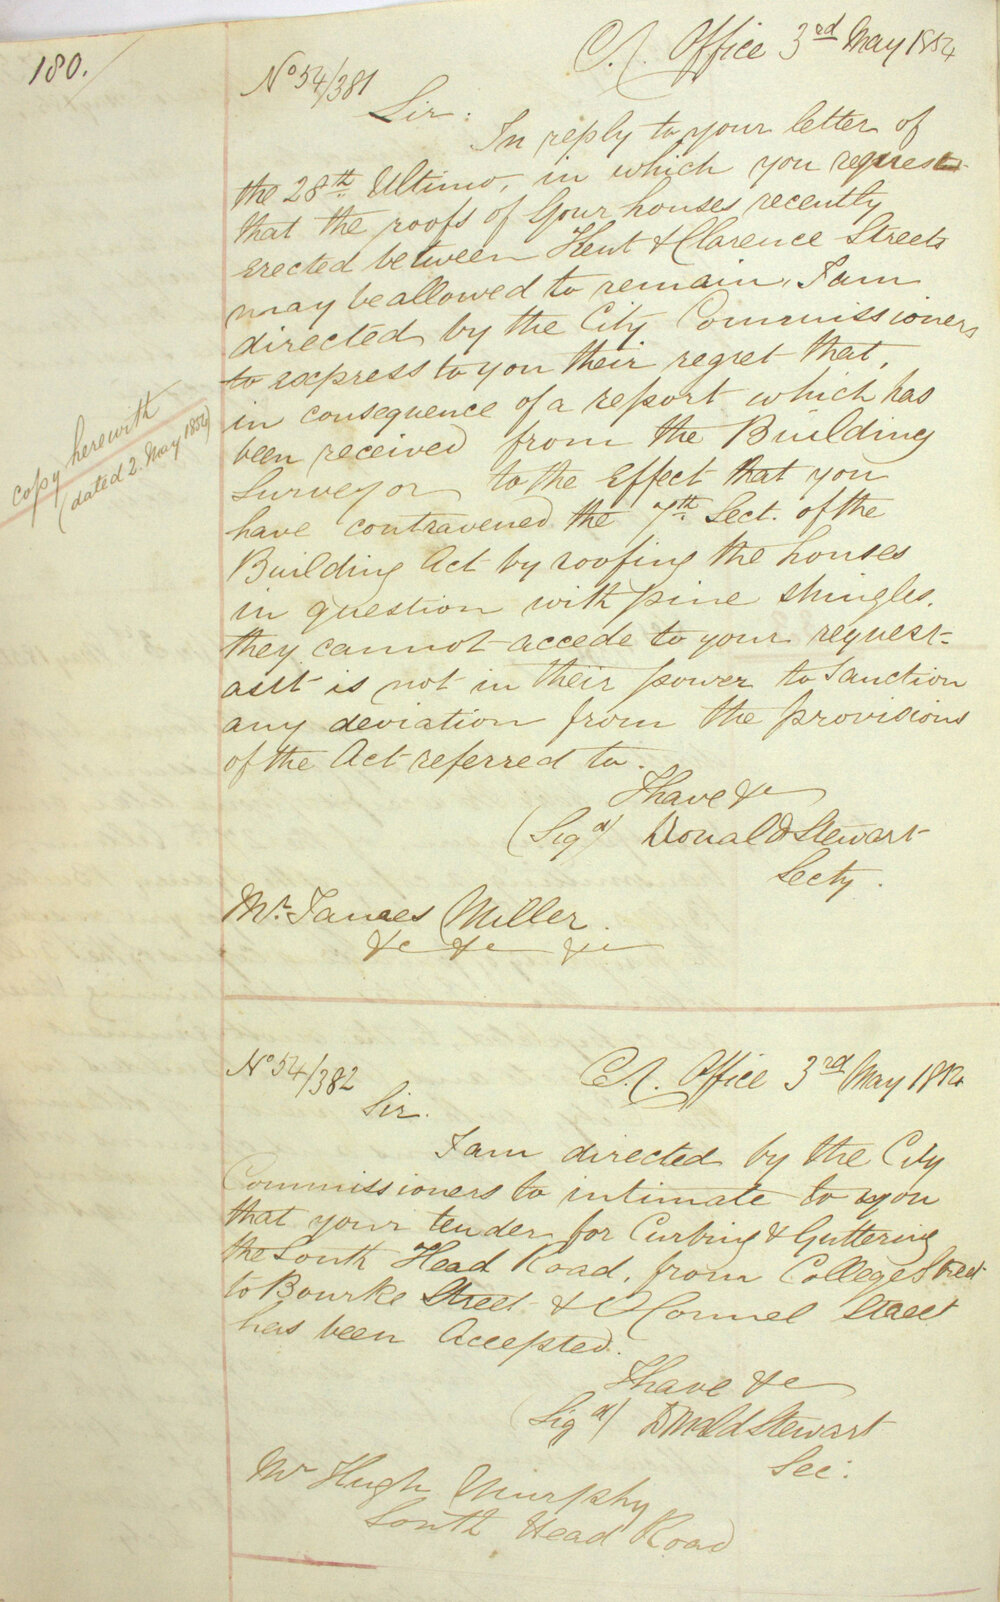 180.
No 54/381
C. C. Office 3rd May 1854
Sir:
In reply to your letter of
the 28th. Ultimo, in which you request
that the roofs of four houses recently
erected between Kent & Clarence Streets
may be allowed to remain, I am
directed by the City Commissioners
to express to you their regret that,
in consequence of a report which has
been received from the Building
Surveyor to the Effect that you
have contravened the 7th. Sect. of the
Building Act by roofing the houses
in question with pine shingles.
they cannot accede to your request
as it is not in their power to Sanction
any deviation from the provisions
of the Act referred to.
I have &c
(Sigd) Donald Stewart
Secty.
Mr. James Miller.
&c &c &c
copy herewith
(dated 2. May 1854)
No 54/382
C. C. Office 3rd May 1854
Sir.
I am directed by the City
Commissioners to intimate to you
that your tender for Curbing & Guttering
the South Head Road, from College Street
to Bourke Street & Street
has been Accepted.
I have &c
(Sigd) Donald Stewart
Sec:
Mr Hugh Murphy
South Head Road